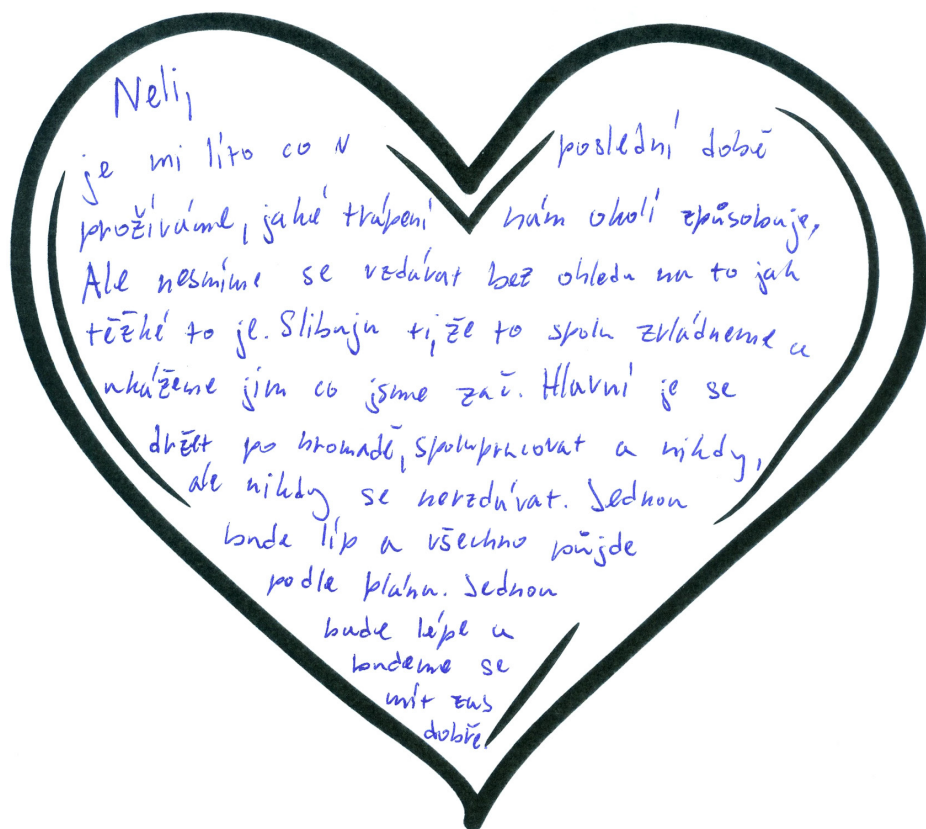 Neli,
je mi líto co v poslední době
prožíváme, jaké trápení nám okolí způsobuje,
Ale nesmíme se vzdávat bez ohledu na to jak
těžké to je. Slibuju ti, že to spolu zvládneme a
ukážeme jim co jsme zač. Hlavní je se
držet po hromadě, spolupracovat a nikdy,
ale nikdy se nevzdávat. Jednou
bude líp a všechno půjde
podle plánu. Jednou
bude lépe a
budeme se
mít zas
dobře.